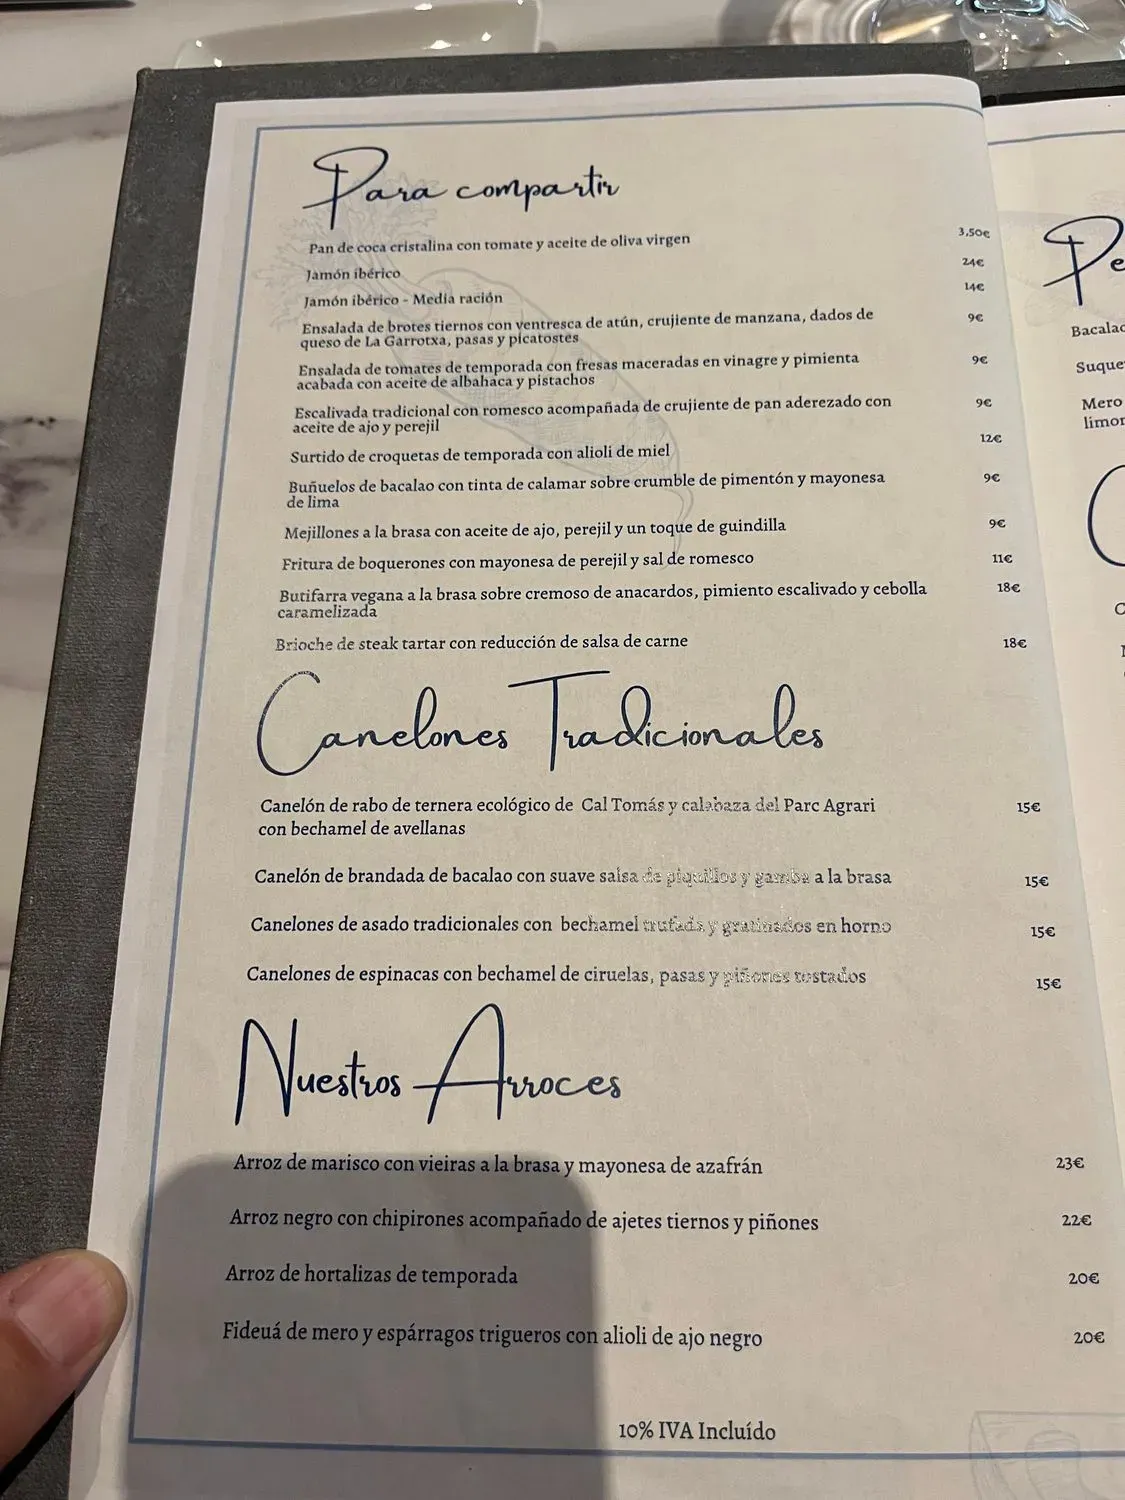 Para compartir
Pan de coca cristalina con tomate y aceite de oliva virgen 3,50€
Jamón ibérico 24€
Jamón ibérico - Media ración 14€
Ensalada de brotes tiernos con ventresca de atún, crujiente de manzana, dados de 9€
queso de La Garrotxa, pasas y picatostes
Ensalada de tomates de temporada con fresas maceradas en vinagre y pimienta 9€
acabada con aceite de albahaca y pistachos
Escalivada tradicional con romesco acompañada de crujiente de pan aderezado con 9€
aceite de ajo y perejil
Surtido de croquetas de temporada con alioli de miel 12€
Buñuelos de bacalao con tinta de calamar sobre crumble de pimentón y mayonesa 9€
de lima
Mejillones a la brasa con aceite de ajo, perejil y un toque de guindilla 9€
Fritura de boquerones con mayonesa de perejil y sal de romesco 11€
Butifarra vegana a la brasa sobre cremoso de anacardos, pimiento escalivado y cebolla 18€
caramelizada
Brioche de steak tartar con reducción de salsa de carne 18€
Canelones Tradicionales
Canelón de rabo de ternera ecológico de Cal Tomás y calabaza del Parc Agrari 15€
con bechamel de avellanas
Canelón de brandada de bacalao con suave salsa de piquillos y gamba a la brasa 15€
Canelones de asado tradicionales con bechamel trufada y gratinados en horno 15€
Canelones de espinacas con bechamel de ciruelas, pasas y piñones tostados 15€
Nuestros Arroces
Arroz de marisco con vieiras a la brasa y mayonesa de azafrán 23€
Arroz negro con chipirones acompañado de ajetes tiernos y piñones 22€
Arroz de hortalizas de temporada 20€
Fideuá de mero y espárragos trigueros con alioli de ajo negro 20€
10% IVA Incluído
Mero